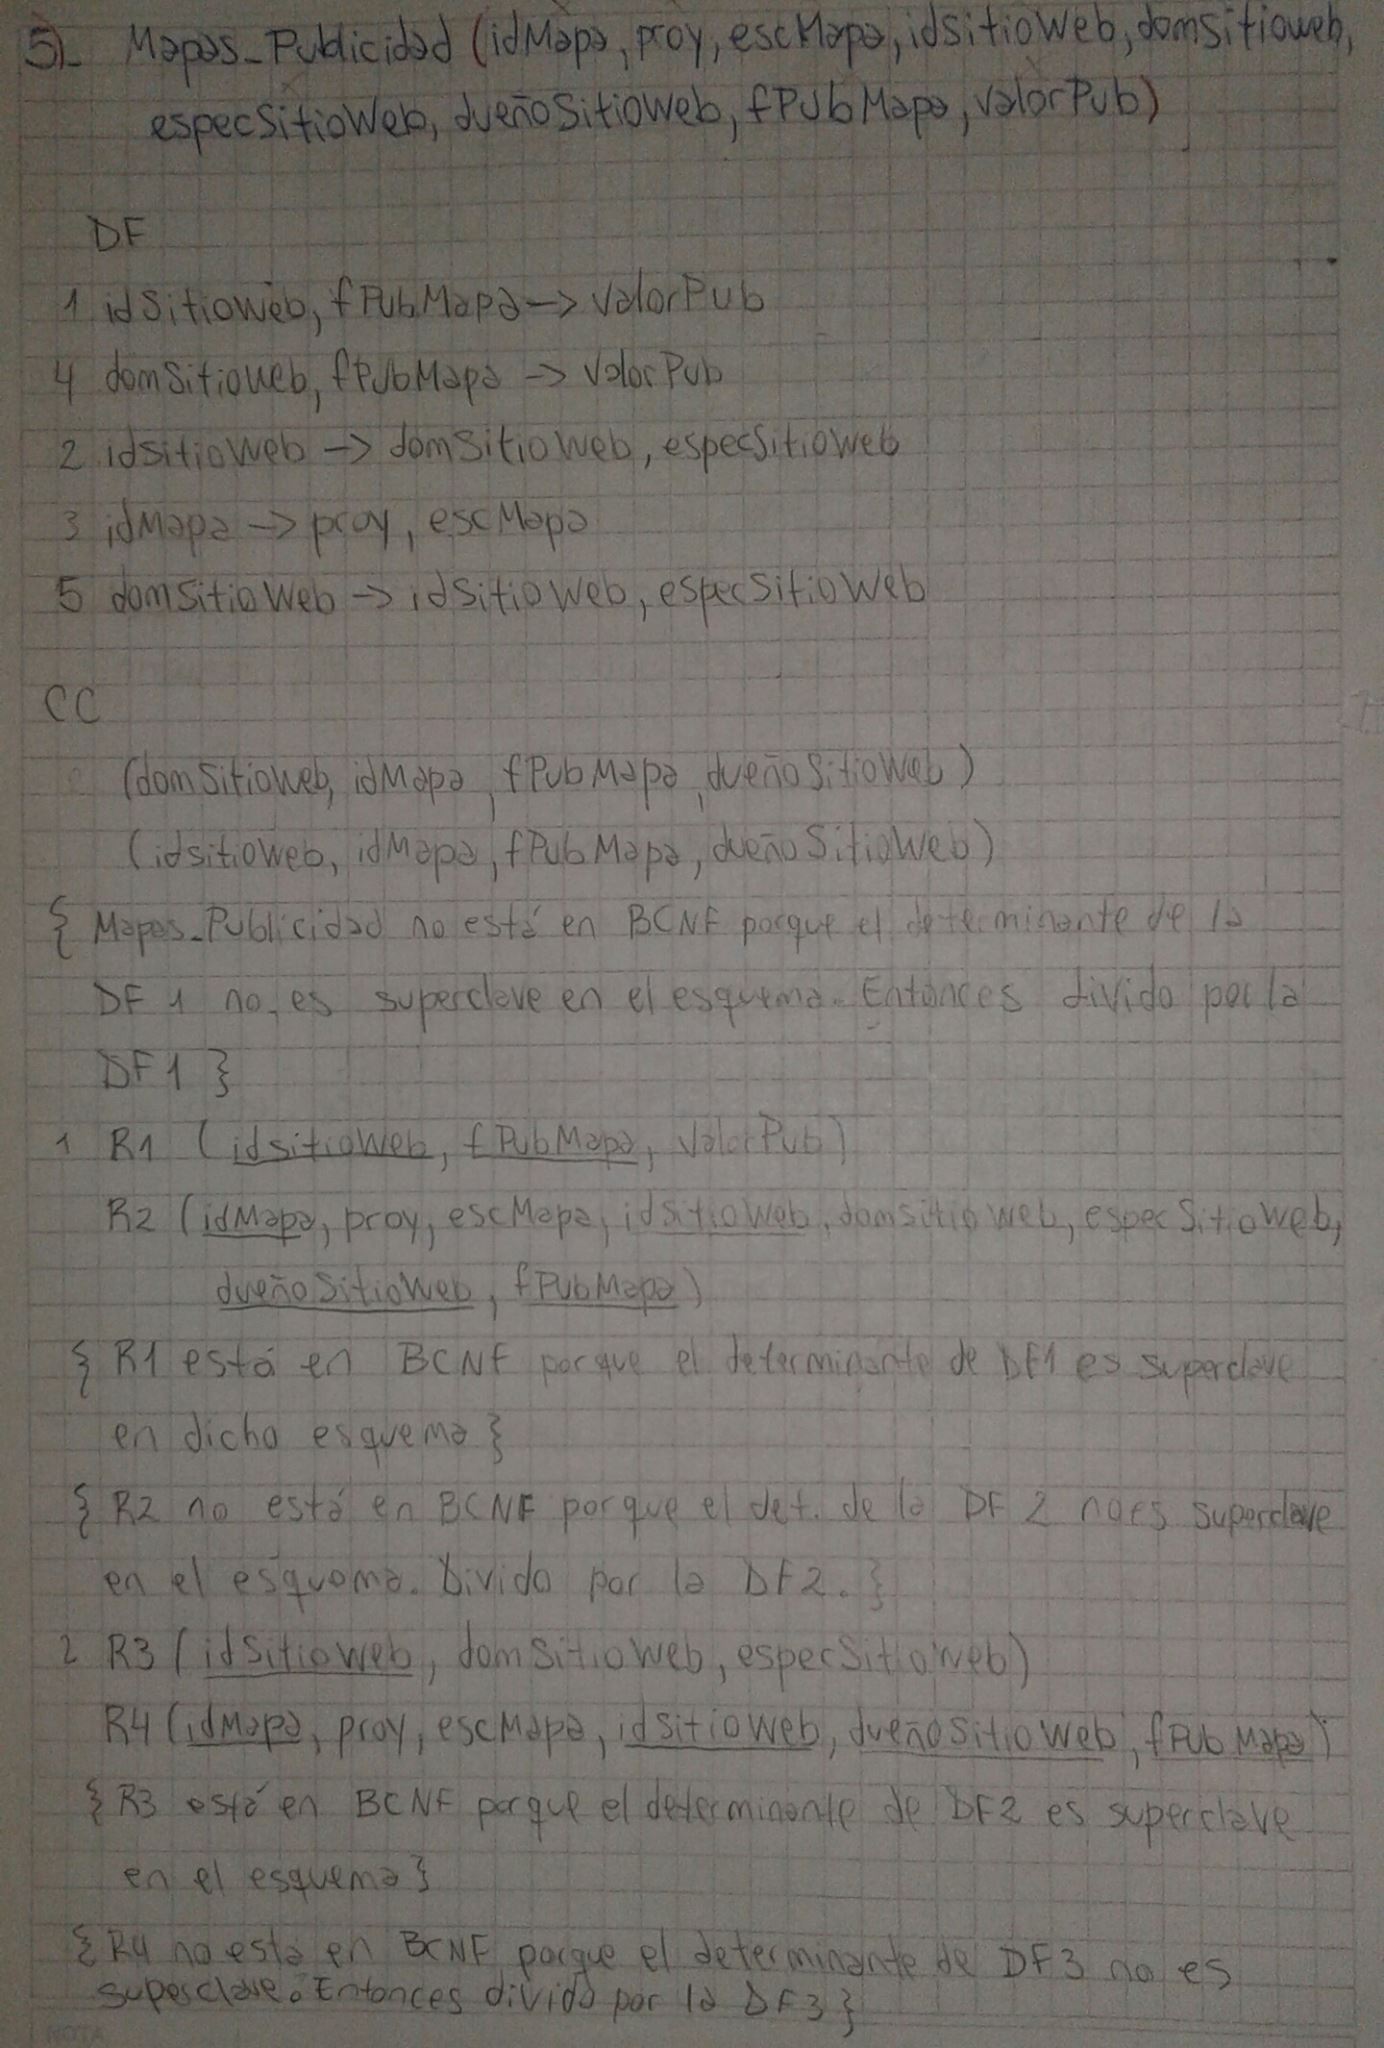 5)_ Mapas_Publicidad (idMapa, proy, escMapa, idsitioWeb, domsitioweb,
especSitioWeb, dueñoSitioWeb, fPubMapa, valorPub)
DF
1 idSitioWeb, fPubMapa -> ValorPub
4 domSitioweb, fPubMapa -> ValorPub
2 idsitioWeb -> domSitioWeb, especSitioWeb
3 idMapa -> proy, escMapa
5 domSitioWeb -> idSitioWeb, especSitioWeb
CC
(domSitioWeb, idMapa, fPubMapa, dueñoSitioWeb)
(idsitioWeb, idMapa, fPubMapa, dueñoSitioWeb)
{ Mapas_Publicidad no está en BCNF porque el determinante de la
DF 1 no es superclave en el esquema. Entonces divido por la
DF1 }
1 R1 (idsitioWeb, fPubMapa, ValorPub)
R2 (idMapa, proy, escMapa, idsitioWeb, domsitioweb, especSitioWeb,
dueñoSitioWeb, fPubMapa)
{ R1 está en BCNF porque el determinante de DF1 es superclave
en dicho esquema }
{ R2 no está en BCNF porque el det. de la DF 2 no es superclave
en el esquema. Divido por la DF2. }
2 R3 (idSitioWeb, domSitioWeb, especSitioWeb)
R4 (idMapa, proy, escMapa, idsitioWeb, dueñoSitioWeb, fPubMapa)
{ R3 está en BCNF porque el determinante de DF2 es superclave
en el esquema }
{ R4 no está en BCNF porque el determinante de DF3 no es
superclave. Entonces divido por la DF3 }
NOTA